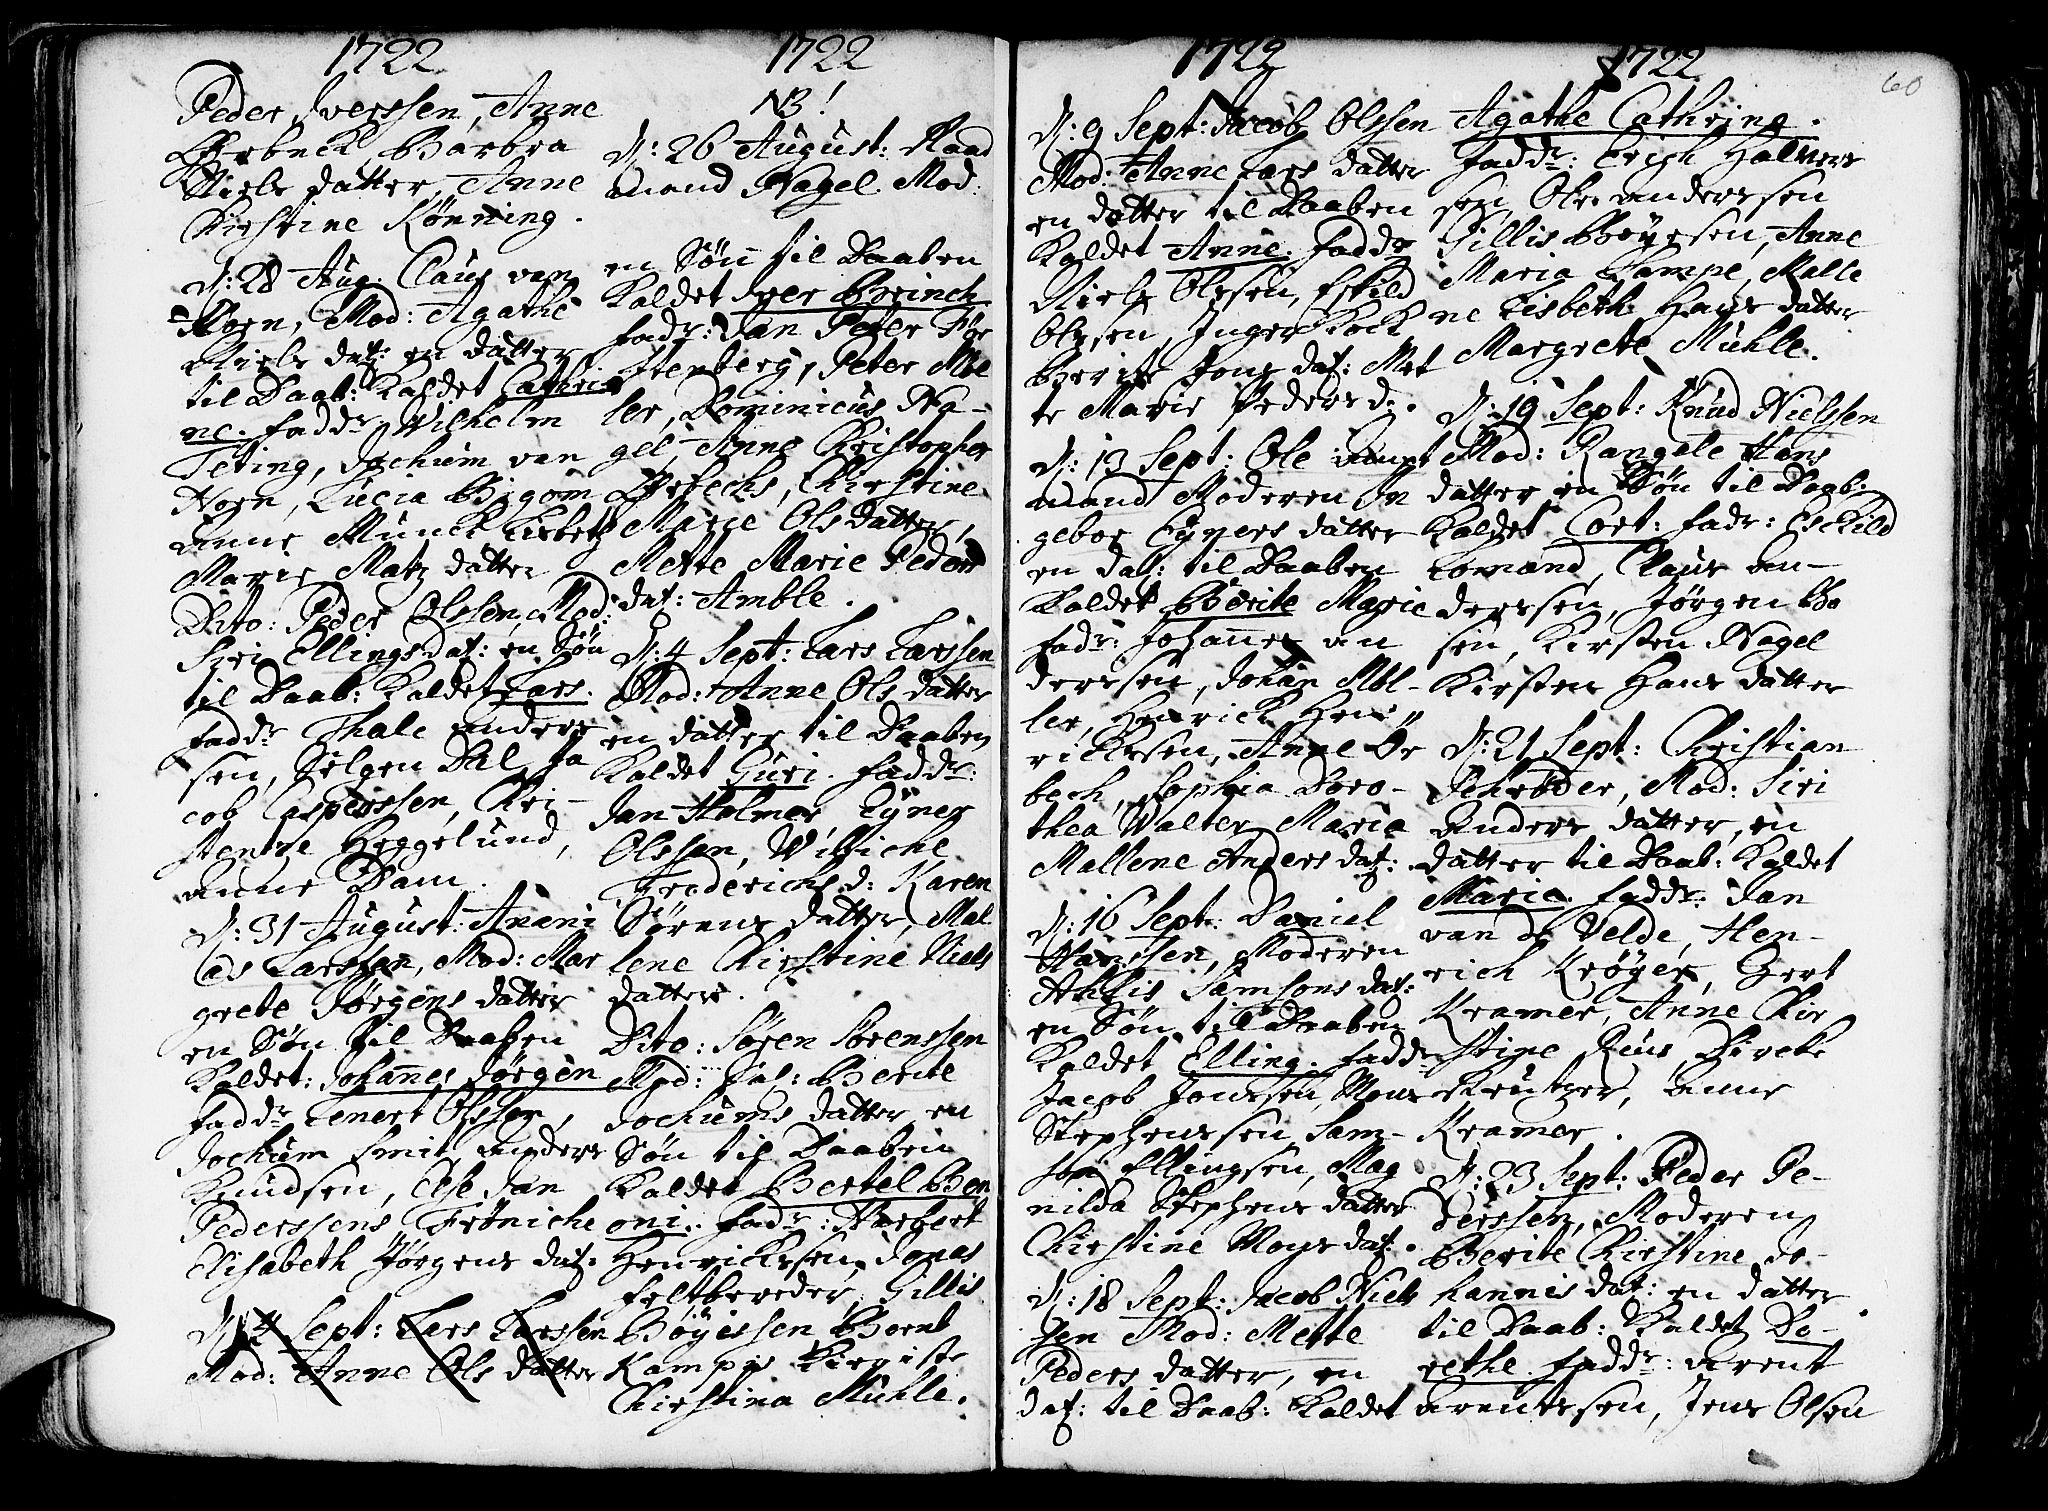 1722
Peder Iverssen, Anne
Barbra
Niels datter, Anne
Kirstine Rönning.
D: 28 Aug. Claus van
Horn, Mod: Agathe
Niels dat: en datter
til Daab: Kaldet Cathri
ne. fadd: Wilhelm
Teting, Jochum van
Horn, Lucia
Anne Munck Lisbeth
Marie Matz datter
Dito: Peder Olssen, Mod:
Siri Ellings dat: en Sön
til Daab: Kaldet Lars.
fadd: Thale Anders
sen, Dal, Ja
cob Casperssen, Chri-
stense Heggelund,
Anne Dam.
D: 31 August: Anani
as Larssen, Mod: Mar
grete Jörgens datter
en Sön til Daaben
Kaldet: Johannes Jörgen
fadd: Lenert Olssen,
Jochum Smit, Anders
Knudsen, Else Jan
Pederssens Fröniche
Elisabeth Jörgens dat:
D: 4 Sept: Lars Larssen
Mod: Anne Ols datter
1722
NB!
D: 26 August: Raad
mand Nagel Mod:
en Sön til Daaben
Kaldet Iver Breinch
fadr: Jan Peter För
stenberg, Peter Möl
ler, Dominicus Na-
gel, Anne Christopher
Chirstine
Marie Ols datter,
Mette Marie Peders
dat: Amble.
D: 4 Sept: Lars Larssen
Mod: Anne Ols datter
en datter til Daaben
Kaldet Guri. fadd:
Jan Holmer, Eyner
Olssen, Williche
Frederichs d: Karen
Sörens datter, Mal
lene Chirstine Niels
datter.
Dito: Sören Sörenssen
Mod: Sal: Berite
Jochums datter en
Sön til Daaben
Kaldet Bertel Ben
oni. fadr: Norbert
Henrichssen, Jonas
feltbereder, Gillis
Böyessen, Bernt
Kampis
Chirstina Mühle.
1722
D: 9 Sept: Jacob Olssen
Mod: Anne Lars datter
en datter til Daaben
Kaldet Anne. fadd:
Niels Olssen, Eskild
Olssen, Inger Kock
Berite Jons dat: Met
te Marie Peders d.
D: 13 Sept: Ole Ampt
mand Moderen In
gebor Eyners datter
en dat: til Daaben
Kaldet Berite Marie
fadr: Johannes An
derssen, Johan Möl-
ler, Henrick Hen
richssen, Anne Ör
bech, Sophia Doro-
thea Walter, Maria
Mallene Anders dat:
D: 16 Sept: Daniel
Hanssen, Moderen
Ahlis Samsons dat:
en Sön til Daaben
Kaldet Elling. fadd:
Jacob Jonssen, Mons
Stephenssen, Sam-
son Ellingsen, Mag
nilda Stephens datter
Chirstine Mons dat:
D: 18 Sept: Jacob Niels
sen Mod: Mette
Peders datter, en
dat: til Daab: Kaldet
1722
60
Agathe Cathring.
fadd: Erich Halvors
sen, Ole Anderssen
Gillis Böyesen, Anne
Maria Kampe, Malle
ne Lisbeth Hans datter
Margrete Mühle.
D: 19 Sept: Knud Nielssen
Mod: Rangele Hans
datter en Sön til Daab:
Kaldet Cort: fadr: Eskild
Lomand, Claus An-
derssen, Jörgen Bo
sen, Kirsten Nagel
Kirsten Hans datter
D: 21 Sept: Christian
Schröder, Mod: Siri
Anders datter, en
datter til Daab: Kaldet
Maria. fadd: Jan
van de Velde, Hen-
rich Kröger, Gert
Kramer, Anne Chir
stine Rus, Birete
Kreutzer, Anne
Kramer.
D: 23 Sept: Peder Pe-
derssen, Moderen
Berite Chirstine Jo-
hannis dat: en datter
til Daab: Kaldet Do-
rethe. fadd: Arent
Arentssen, Jens Olsen